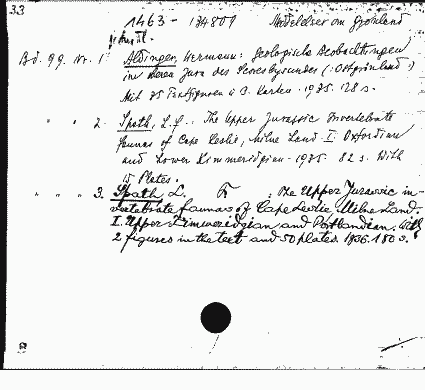 33
1463 - 134809 Meddelelser om Grønland
Bd. 99. Nr. 1. Aldinger, Hermann: Geologische Beobachtungen
im Jura des Scoresbysundes (: Ostgrönland :)
Mit 25 Textfiguren u. 2. Karten - 1935. 128 s.
" " 2. Spath, L. F.: The Upper Jurassic Invertebrate
faunas of Cape Leslie, Milne Land I. Oxfordian
and Lower Kimmeridgian - 1935 82 s. With
15 Plates.
" " " 3. Spath, L. F. : The Upper Jurassic in-
vertebrate faunas of Cape Leslie, Milne Land.
I. Upper Kimmeridgian and Portlandian. With
2 figures in the text and 50 plates 1936. 180 s.